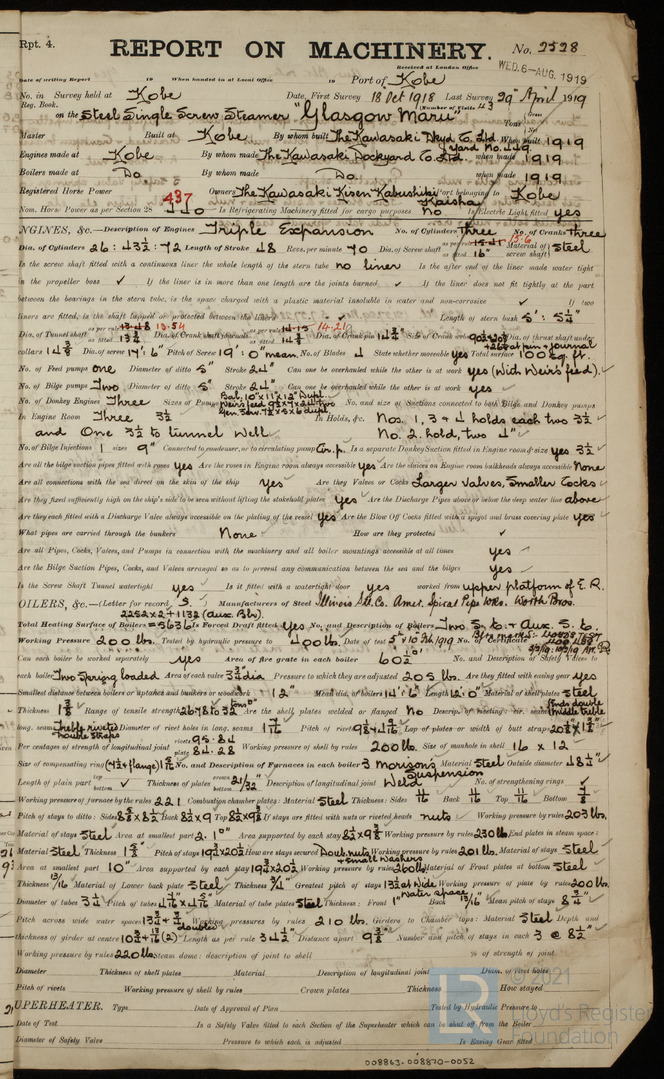 Rpt. 4.
REPORT ON MACHINERY.
No. 2528
Received at London Office
WED. 6-AUG. 1919
Date of writing Report 19 When handed in at Local Office 19 Port of Kobe
No. in Survey held at Kobe Date, First Survey 18 Oct 1918 Last Survey 29th April 1919
Reg. Book. (Number of Visits 43
on the Steel Single Screw Steamer "Glasgow Maru" Tons Gross Net
Master Built at Kobe By whom built The Kawasaki Dkyd Co. Ltd. Yard No. 449 When built 1919
Engines made at Kobe By whom made The Kawasaki Dockyard Co. Ltd. when made 1919
Boilers made at Do By whom made Do. when made 1919
Registered Horse Power Owners The Kawasaki Kisen Kabushiki Kaisha Port belonging to Kobe
Nom. Horse Power as per Section 28 437 440 Is Refrigerating Machinery fitted for cargo purposes No Is Electric Light fitted yes
NGINES, &c.—Description of Engines Triple Expansion No. of Cylinders Three No. of Cranks three
Dia. of Cylinders 26 : 43½ : 72 Length of Stroke 48 Revs. per minute 70 Dia. of Screw shaft as per rule 15.41 13.6 as fitted 16" Material of screw shaft steel
Is the screw shaft fitted with a continuous liner the whole length of the stern tube no liner Is the after end of the liner made water tight
in the propeller boss ✓ If the liner is in more than one length are the joints burned ✓ If the liner does not fit tightly at the part
between the bearings in the stern tube, is the space charged with a plastic material insoluble in water and non-corrosive ✓ If two
liners are fitted, is the shaft lapped or protected between the liners ✓ Length of stern bush 5' : 5¼"
Dia. of Tunnel shaft as per rule 13.48 13.54 as fitted 13¾ Dia. of Crank shaft journals as per rule 14.15 14.21 as fitted 14⅜ Dia. of Crank pin 14⅜" Size of Crank webs Dia. of thrust shaft under
collars 14⅜ Dia. of screw 17'. 6" Pitch of Screw 19' : 0" mean No. of Blades 4 State whether moveable yes Total surface 100 sq. ft.
No. of Feed pumps one Diameter of ditto 5" Stroke 24" Can one be overhauled while the other is at work yes (With Weir's feed).
No. of Bilge pumps Two Diameter of ditto 5" Stroke 24" Can one be overhauled while the other is at work yes
No. of Donkey Engines Three Sizes of Pumps Bal. 10" x 11" x 12" Dupl. No. and size of Suctions connected to both Bilge and Donkey pumps
In Engine Room Three 3½ In Holds, &c. Nos. 1, 3 & 4 holds each two 3½
and One 3½ to tunnel well No. 2. hold, two 4"
No. of Bilge Injections 1 sizes 9" Connected to condenser, or to circulating pump Cir. p. Is a separate Donkey Suction fitted in Engine room & size yes 3½
Are all the bilge suction pipes fitted with roses yes Are the roses in Engine room always accessible yes Are the sluices on Engine room bulkheads always accessible None
Are all connections with the sea direct on the skin of the ship yes Are they Valves or Cocks Larger Valves, Smaller Cocks
Are they fixed sufficiently high on the ship's side to be seen without lifting the stokehold plates yes Are the Discharge Pipes above or below the deep water line above
Are they each fitted with a Discharge Valve always accessible on the plating of the vessel yes Are the Blow Off Cocks fitted with a spigot and brass covering plate yes
What pipes are carried through the bunkers None How are they protected ✓
Are all Pipes, Cocks, Valves, and Pumps in connection with the machinery and all boiler mountings accessible at all times yes
Are the Bilge Suction Pipes, Cocks, and Valves arranged so as to prevent any communication between the sea and the bilges yes
Is the Screw Shaft Tunnel watertight yes Is it fitted with a watertight door yes worked from upper platform of E. R.
OILERS, &c.—(Letter for record S. ) Manufacturers of Steel Illinois Stl. Co. Amer. Spiral Pipe Wks. Worth Bros.
2252 x 2 + 1132 (Aux. Blr).
Total Heating Surface of Boilers = 5636 Is Forced Draft fitted Yes No. and Description of Boilers Two S. E. & Aux. S. E.
Working Pressure 200 lbs. Tested by hydraulic pressure to 400 lbs. Date of test No. of Certificate
Can each boiler be worked separately yes Area of fire grate in each boiler 60½ No. and Description of Safety Valves to
each boiler Two Spring loaded Area of each valve 3¾ dia Pressure to which they are adjusted 205 lbs. Are they fitted with easing gear yes
Smallest distance between boilers or uptakes and bunkers or woodwork 12" Mean dia. of boilers 14'. 6" Length 12'. 0" Material of shell plates Steel
Thickness Range of tensile strength 26.78 to 32 Are the shell plates welded or flanged No Descrip. of riveting: cir. seams Ends double (middle treble
long. seams Treble rivets double straps Diameter of rivet holes in long. seams Pitch of rivets Lap of plates or width of butt straps
Per centages of strength of longitudinal joint rivets 95.84 plate 84.28 Working pressure of shell by rules 200 lb. Size of manhole in shell 16 x 12
Size of compensating ring No. and Description of Furnaces in each boiler 3 Morison's Suspension Material Steel Outside diameter 48¼"
Length of plain part top bottom ✓ Thickness of plates crown bottom 21/32" Description of longitudinal joint Weld No. of strengthening rings ✓
Working pressure of furnace by the rules 221 Combustion chamber plates: Material Steel Thickness: Sides 11/16 Back 11/16 Top 11/16 Bottom ⅞
Pitch of stays to ditto: Sides Back Top If stays are fitted with nuts or riveted heads nuts Working pressure by rules 203 lb.
Material of stays Steel Area at smallest part 2.1 Area supported by each stay Working pressure by rules 230 lb. End plates in steam space:
Material Steel Thickness Pitch of stays How are stays secured Doub. nuts & small Washers Working pressure by rules 201 lb. Material of stays Steel
Area at smallest part 10" Area supported by each stay Working pressure by rules 200 lb. Material of Front plates at bottom Steel
Thickness 13/16 Material of Lower back plate Steel Thickness ¾" Greatest pitch of stays 13¾ at Wide Water space Working pressure of plate by rules 200 lb.
Diameter of tubes 3¼ Pitch of tubes Material of tube plates Steel Thickness: Front 1" Back 13/16" Mean pitch of stays 8¾"
Pitch across wide water spaces Working pressures by rules 210 lb. Girders to Chamber tops: Material Steel Depth and
thickness of girder at centre Length as per rule 34½" Distance apart 9⅜ Number and pitch of stays in each 3 @ 8½"
Working pressure by rules 220 lb. Steam dome: description of joint to shell % of strength of joint
Diameter Thickness of shell plates Material Description of longitudinal joint Diam. of rivet holes
Pitch of rivets Working pressure of shell by rules Crown plates Thickness How stayed
UPERHEATER. Type Date of Approval of Plan Tested by Hydraulic Pressure to
Date of Test Is a Safety Valve fitted to each Section of the Superheater which can be shut off from the Boiler
Diameter of Safety Valve Pressure to which each is adjusted Is Easing Gear fitted
© 2021
Lloyd's Register
Foundation
008863-008870-0052